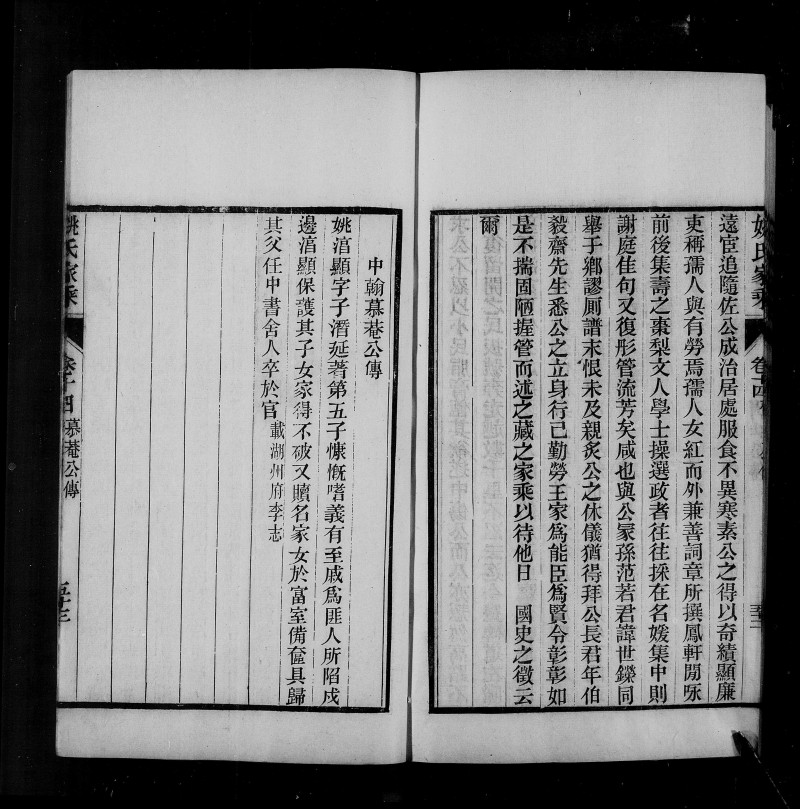 姚氏家乘
卷十四
遠宦追隨佐公成治居處服食不異寒素公之得以奇績顯廉
吏稱孺人與有勞焉孺人女紅而外兼善詞章所撰鳳軒閒咏
前後集壽之棗梨文人學士操選政者往往採在名媛集中則
謝庭佳句又復彤管流芳矣咸也與公冢孫范若君諱世鑅同
舉于鄉謬厠譜末恨未及親炙公之休儀猶得拜公長君年伯
毅齋先生悉公之立身行己勤勞王家為能臣為賢令彰彰如
是不揣固陋握管而述之藏之家乘以待他日 國史之徵云
爾
中翰慕菴公傳
姚涫顯字子潛延著第五子慷慨嗜義有至戚為匪人所陷戍
邊涫顯保護其子女家得不破又贖名家女於富室備奩具歸
其父任中書舍人卒於官載湖州府李志
姚氏家乘
卷十四 慕菴公傳
五十三